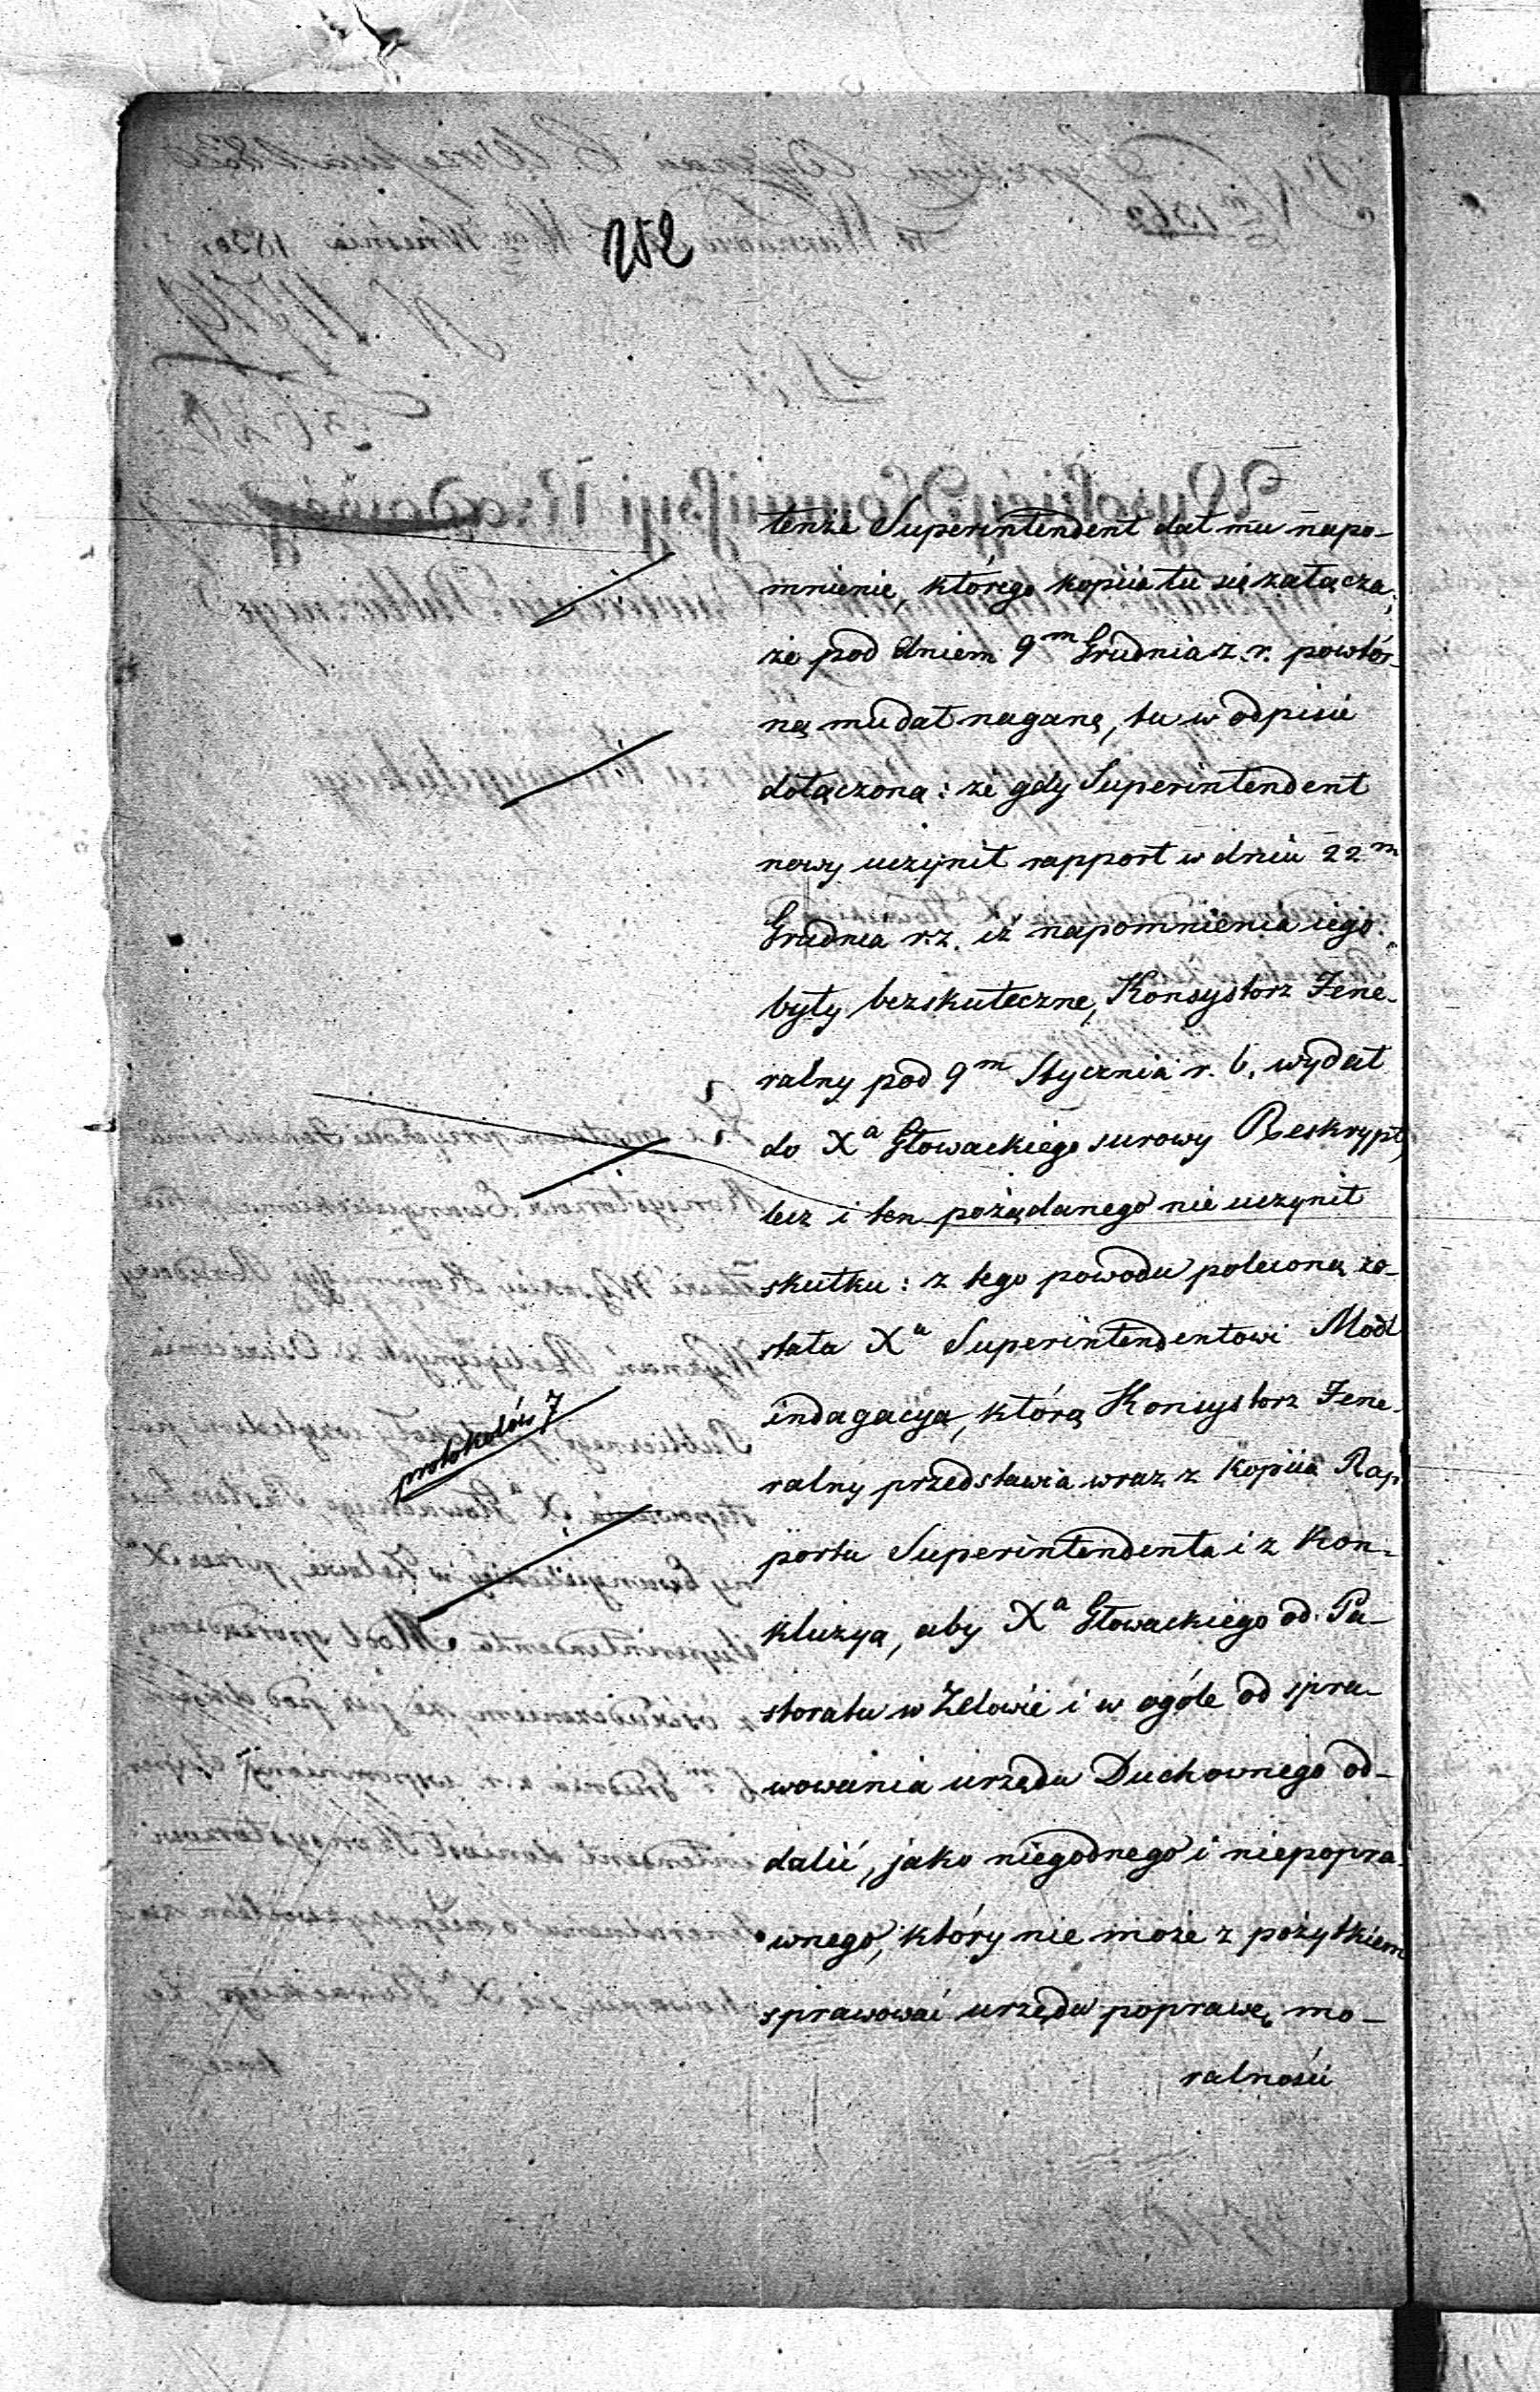 252
tenże Superintendent dał mu napo-
mnienie, którego kopiia tu się załącza;
że pod dniem 9m Grudnia z. r. powtór-
ną mu dał naganę, tu w odpisie
dołączoną: że gdy Superintendent
nowy uczynił rapport w dniu 22m
Grudnia r. z. iż napomnienia iego
były bezskuteczne, Konsystorz Jene-
ralny pod 9m Stycznia r. b. wydał
do Xa Głowackiego surowy Reskrypt,
lecz i ten pożądanego nie uczynił
skutku: z tego powodu poleconą zo-
stała Xu Superintendentowi Modl
indagacya, którą Konsystorz Jene-
ralny przedstawia wraz z kopiią Rap-
portu Superintendenta i z Kon-
kluzyą, aby Xa Głowackiego od Pa-
storatu w Zelowie i w ogóle od spra-
wowania urzędu Duchownego od-
dalić, jako niegodnego i niepopra-
wnego, który nie może z pożytkiem
sprawować urzędu poprawę mo-
ralności
protokołów 7